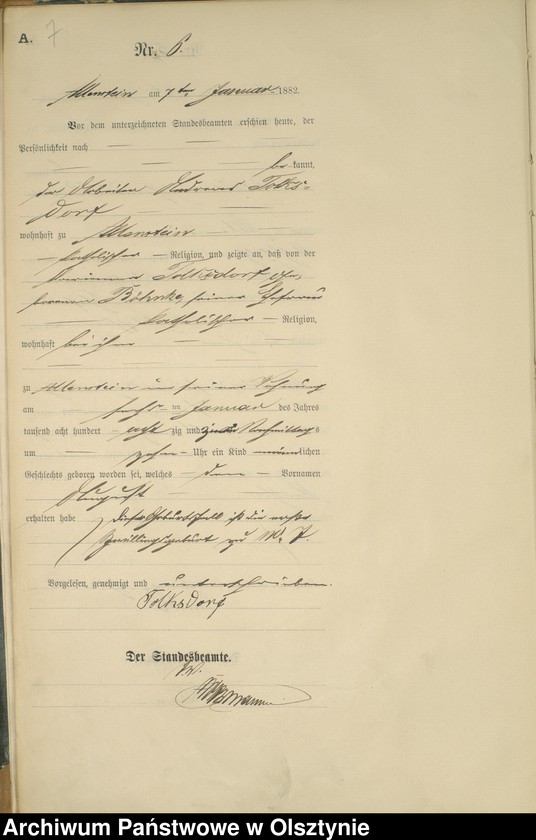 A. 7
Nr. 6.
Allenstein am 7ten Januar 1882.
Vor dem unterzeichneten Standesbeamten erschien heute, der
Persönlichkeit nach
be kannt,
der Arbeiter Andreas Tolks-
dorf
wohnhaft zu Allenstein
katholischer Religion, und zeigte an, daß von der
Tolksdorf ge-
borenen Böhnke, seiner Ehefrau
katholischer Religion,
wohnhaft bei ihm
zu Allenstein in seiner Wohnung
am sechsten Januar des Jahres
tausend acht hundert achtzig und zwei Vormittags
um zehn Uhr ein Kind männlichen
Geschlechts geboren worden sei, welches den Vornamen
August
erhalten habe diese Geburtsfall ist die erste
Zwillingsgeburt zu
Vorgelesen, genehmigt und unterschrieben.
Tolksdorf
Der Standesbeamte.
Archiwum Państwowe w Olsztynie